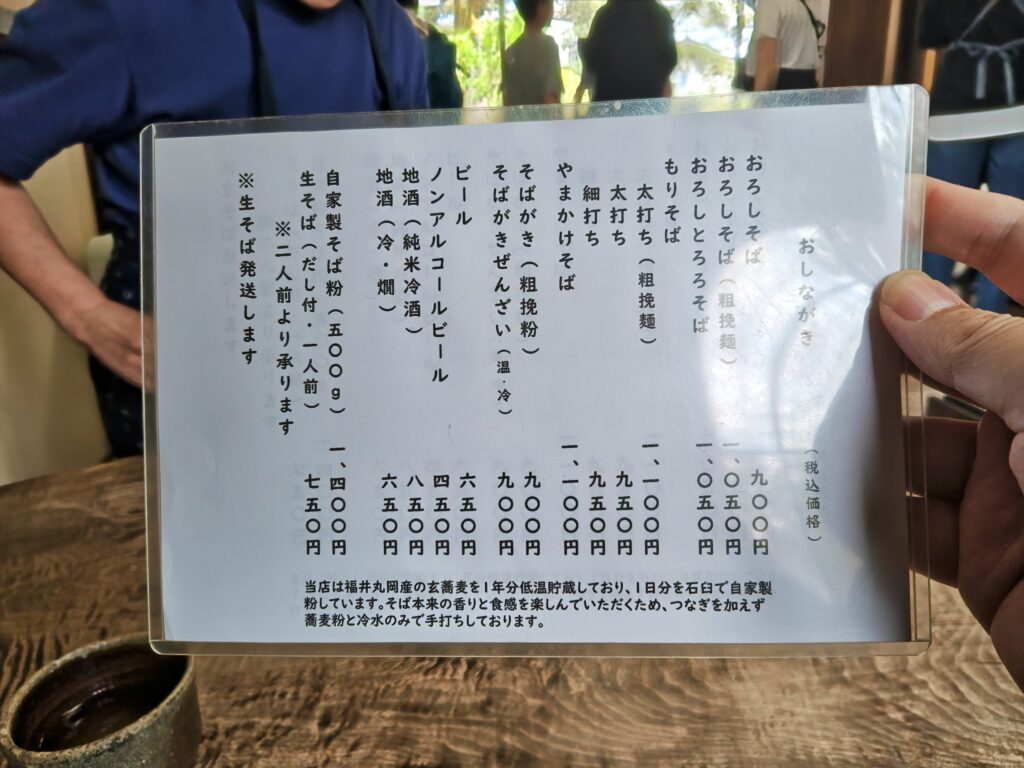 おしながき （税込価格）
おろしそば 九〇〇円
おろしそば（粗挽麺） 一、〇五〇円
おろしとろろそば 一、〇五〇円
もりそば
太打ち（粗挽麺） 一、一〇〇円
太打ち 九五〇円
細打ち 九五〇円
やまかけそば 一、一〇〇円
そばがき（粗挽粉） 九〇〇円
そばがきぜんざい（温・冷） 九〇〇円
ビール 六五〇円
ノンアルコールビール 四五〇円
地酒（純米冷酒） 八五〇円
地酒（冷・燗） 六五〇円
自家製そば粉（五〇〇g） 一、四〇〇円
生そば（だし付・一人前） 七五〇円
※二人前より承ります
※生そば発送します
当店は福井丸岡産の玄蕎麦を1年分低温貯蔵しており、1日分を石臼で自家製
粉しています。そば本来の香りと食感を楽しんでいただくため、つなぎを加えず
蕎麦粉と冷水のみで手打ちしております。